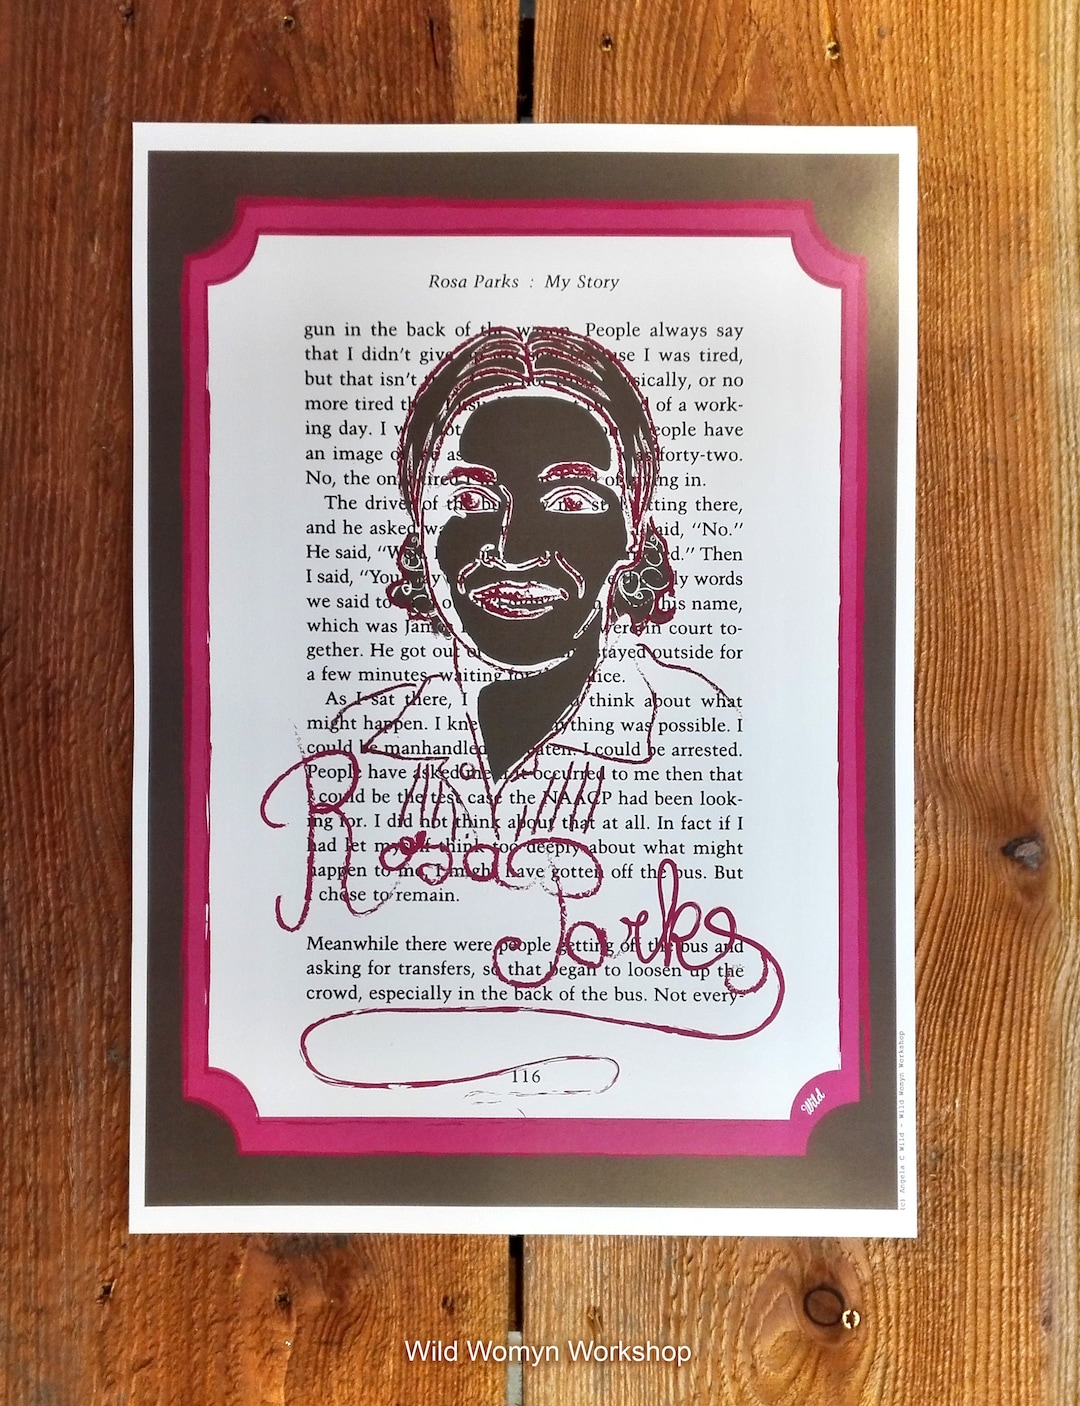 Rosa Parks : My Story
gun in the back of the wagon. People always say
that I didn't give up my seat because I was tired,
but that isn't physically, or no
more tired of a work-
ing day. I was not people have
an image of me as was forty-two.
No, the only tired I of giving in.
The driver of the bus saw me still sitting there,
and he asked was said, "No."
He said, "Well, Then
I said, "You may the only words
we said to his name,
which was James were in court to-
gether. He got out of stayed outside for
a few minutes, waiting for the police.
As I sat there, I think about what
might happen. I knew anything was possible. I
could be manhandled beaten. I could be arrested.
People have asked me if it occurred to me then that
I could be the test case the NAACP had been look-
ing for. I did not think about that at all. In fact if I
had let myself think too deeply about what might
happen to me, I might have gotten off the bus. But
I chose to remain.
Rosa Parks
Meanwhile there were people getting off the bus and
asking for transfers, so that began to loosen up the
crowd, especially in the back of the bus. Not every-
116
Wild
(c) Angela C Wild - Wild Womyn Workshop
Wild Womyn Workshop